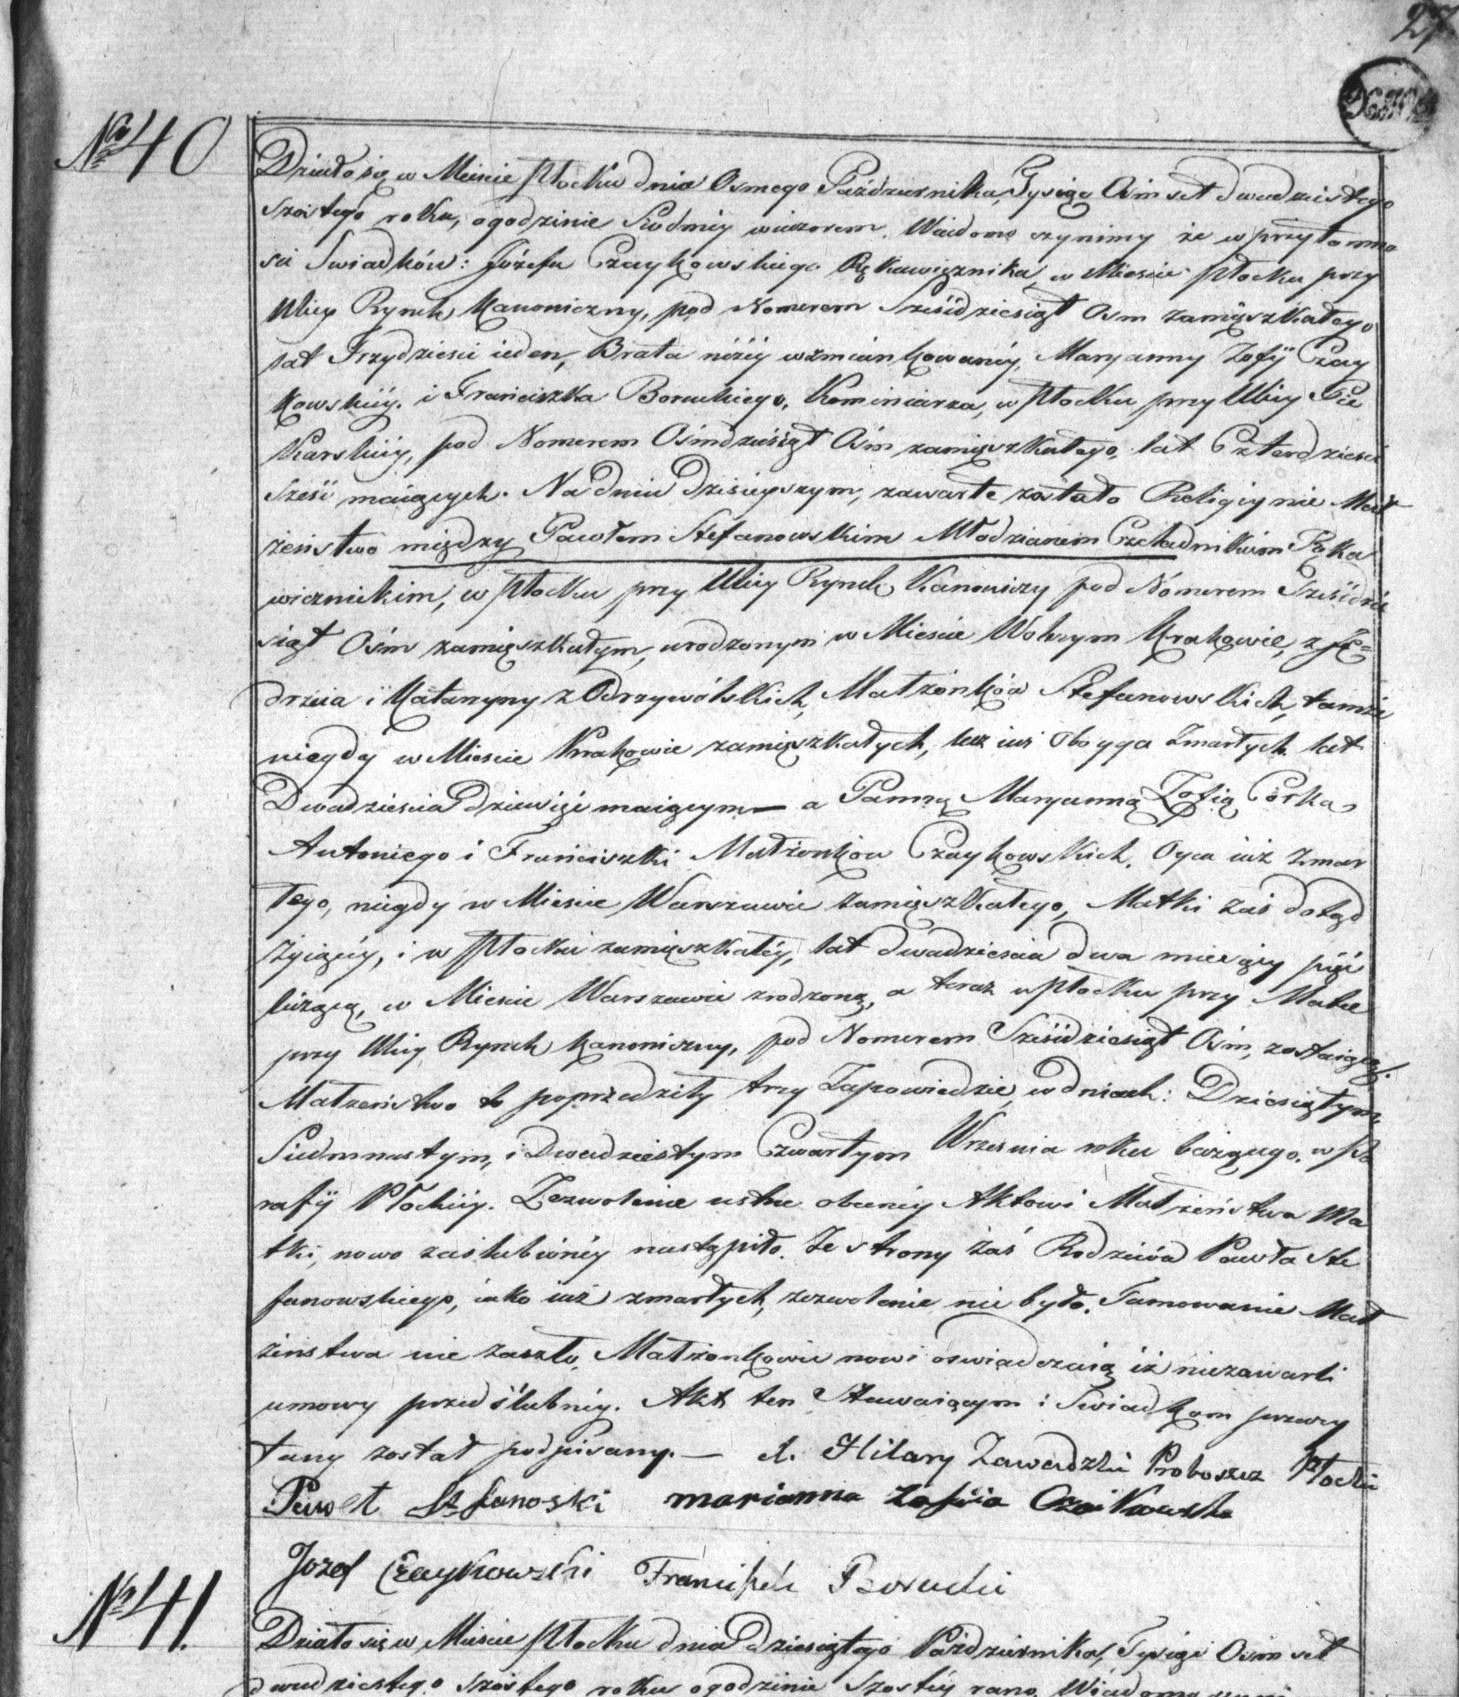 27
No 40
Działo się w Mieście Płocku dnia Osmego Października, Tysiąc Ośmset Dwudziestego
Szostego roku, o godzinie Siodmey wieczorem. Wiadomo czynimy że w przytomno
ści Swiadków: Józefa Czaykowskiego Rękawicznika, w Mieście Płocku przy
Ulicy Rynek Kanoniczny, pod Nomerem Sześćdziesiąt Osm zamięszkałego
lat Trzydzieści ieden, Brata niżéy wzmiankowanéy Maryanny Zofÿ Czay
kowskiéy. i Franciszka Boruckiego, Kominiarza, w Płocku przy Ulicy Pie
karskiéy, pod Nomerem Ośmdziesiąt Ośm zamięszkałego, lat Czterdzieści
sześć maiących. Na dniu dzisieyszym, zawarte zostało Religiynie Mał
żeństwo między Pawłem Stefanowskim Młodzianem Czeladnikiem Ręka
wicznickim, w Płocku przy Ulicy Rynek Kanoniczy pod Nómerem Sześćdzie
siąt Ośm zamięszkałym, urodzonym w Mieście Wolnym Krakowie, z Ję=
drzeia i Katarzyny z Odrzywólskich, Małżonków Stefanowskich, tamże
niegdy w Mieście Krakowie zamięszkałych, lecz iuż Oboyga Zmarłych lat
Dwadzieścia Dziewięć maiącym — a Panną Maryanną Zofią Córką
Antoniego i Franciszki Małżonków Czaykowskich, Oyca iuż Zmar
łego, niegdy w Mieście Warszawie zamięszkałego, Matki zaś dotąd
żyiącéy, i w Płocku zamięszkałéy, lat dwadzieścia dwa miesięcy pięć
liczącą, w Mieście Warszawie zrodzoną, a teraz w Płocku przy Matce
przy Ulicy Rynek Kanoniczny, pod Nomerem Sześćdziesiąt Ośm, zostaiącą.
Małżeństwo to poprzedziły trzy Zapowiedzie, w dniach: Dziesiątym,
Siedmnastym, i Dwudziestym Czwartym Września roku bieżącego, w Pa
rafÿ Płockiéy. Zezwolenie ustne obecnéy Aktowi Małżeństwa Ma
tki, nowo zaślubionéy nastąpiło. Ze strony zaś Rodziców Pawła Ste
fanowskiego, iako iuż zmarłych, zezwolenie nie było. Tamowanie Mał
żeństwa nie zaszło, Małżonkowie nowi oswiadczaią iż niezawarli
umowy przedślubnéy. Akt ten Stawaiącym i Swiadkom przeczy
tany został podpisany. — X. Hilary Zawadzki Proboszcz Płocki
Paweł Stefanoski marianna Zofiia Czaikowska
Jozef Czaykowski Franciszek Borucki
No 41.
Działo się w Mieście Płocku dnia dziesiątego Października, Tysiąc Ośmset
dwudziestego szostego roku o godzinie Szostéy rano. Wiadomo